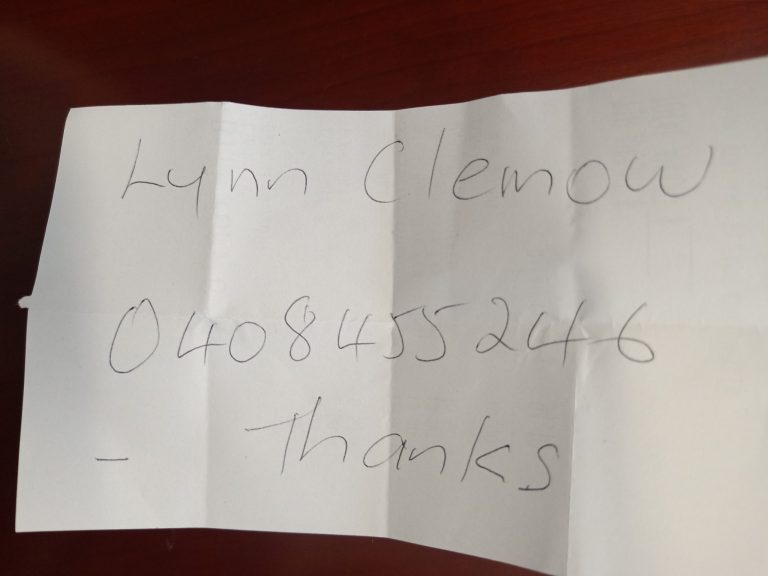 Lynn Clemow
0408455246
- Thanks